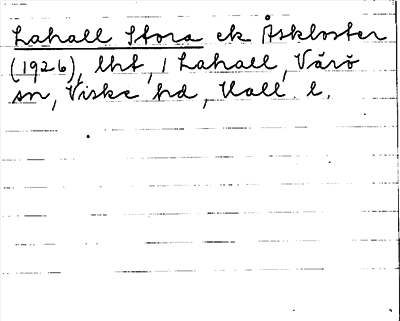 Lahall Stora ek Åskloster
(1926), lht, 1 Lahall, Värö
sn, Viske hd, Hall l.